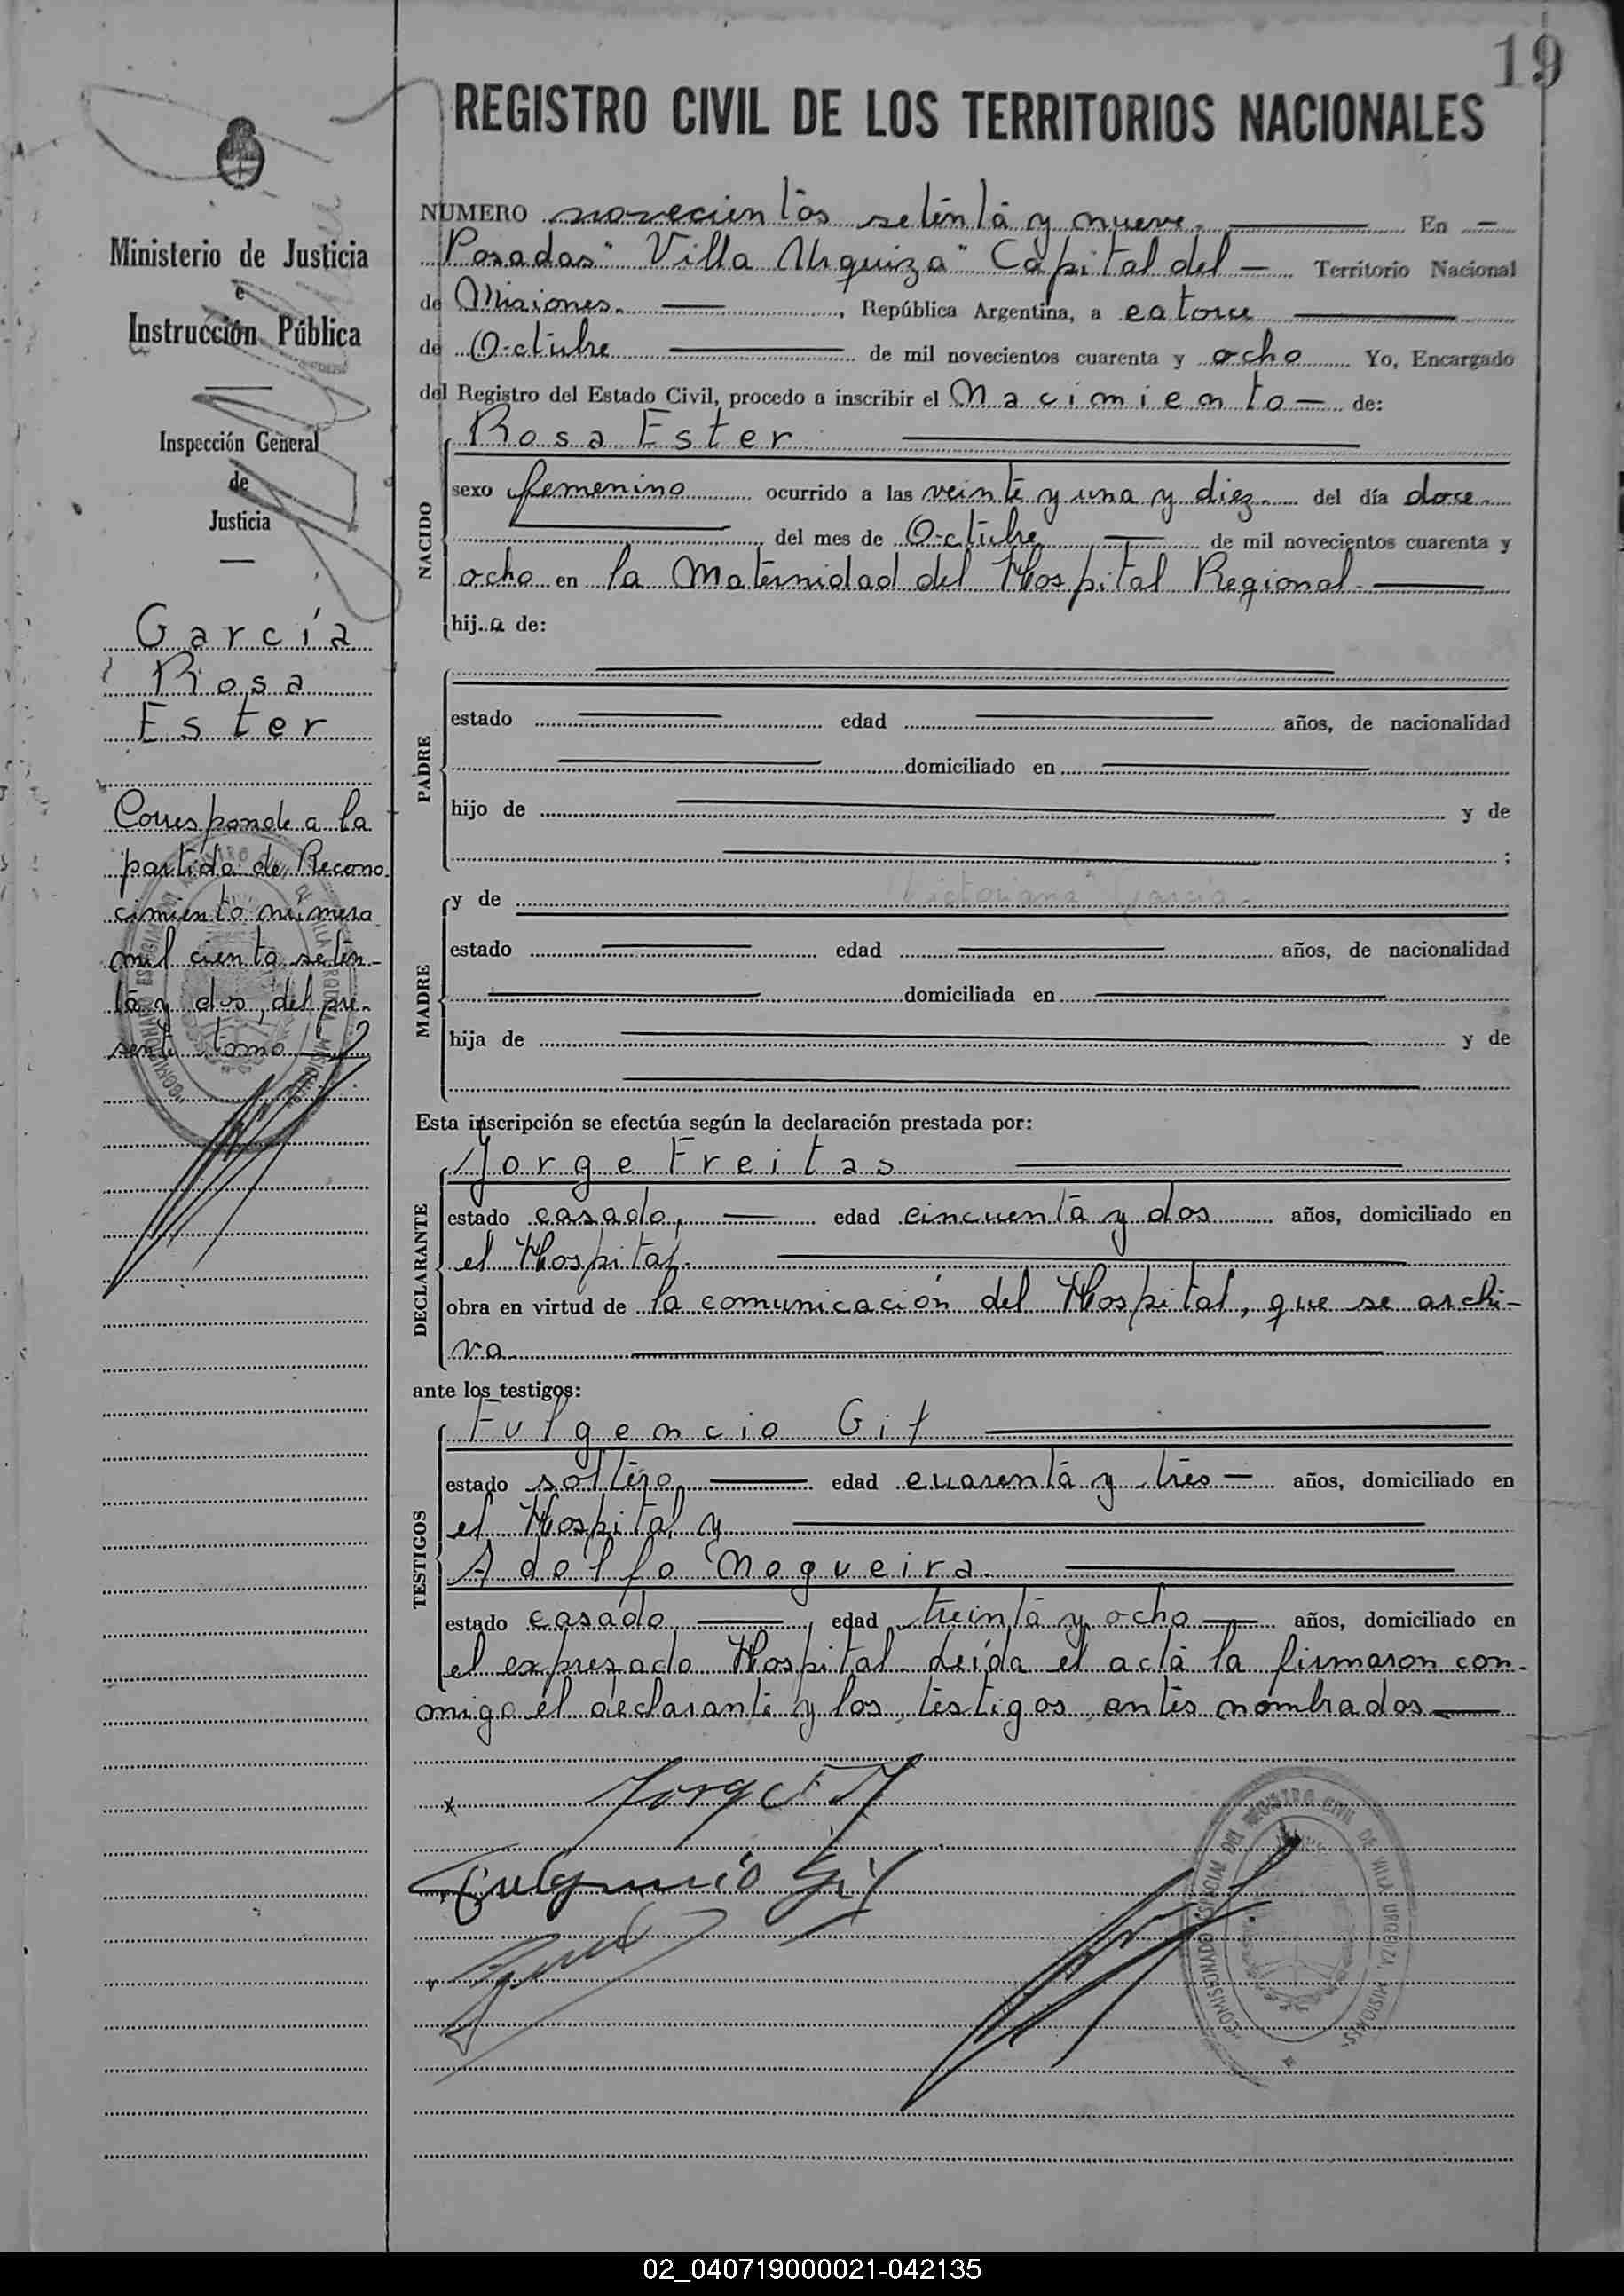 19
REGISTRO CIVIL DE LOS TERRITORIOS NACIONALES
Ministerio de Justicia
e
Instrucción Pública
Inspección General
de
Justicia
García
Rosa
Ester
Corresponde a la
partida de Recono
cimiento número
mil ciento seten-
ta y dos, del pre-
sente tomo
NUMERO novecientos setenta y nueve. En
Posadas "Villa Urquiza" Capital del Territorio Nacional
de Misiones. , República Argentina, a catorce
de Octubre de mil novecientos cuarenta y ocho Yo, Encargado
del Registro del Estado Civil, procedo a inscribir el Nacimiento de:
NACIDO
Rosa Ester
sexo femenino ocurrido a las veinte y una y diez del día doce
del mes de Octubre de mil novecientos cuarenta y
ocho en la Maternidad del Hospital Regional
hij a de:
PADRE
estado edad años, de nacionalidad
domiciliado en
hijo de y de
;
MADRE
y de Victoriana García
estado edad años, de nacionalidad
domiciliada en
hija de y de
Esta inscripción se efectúa según la declaración prestada por:
DECLARANTE
Jorge Freitas
estado casado, edad cincuenta y dos años, domiciliado en
el Hospital.
obra en virtud de la comunicación del Hospital, que se archi-
va
ante los testigos:
TESTIGOS
Fulgencio Gil
estado soltero edad cuarenta y tres años, domiciliado en
el Hospital y
Adolfo Nogueira.
estado casado, edad treinta y ocho años, domiciliado en
el expresado Hospital. Leída el acta la firmaron con-
migo el declarante y los testigos antes nombrados
Fulgencio Gil
COMISIONADO ESPECIAL DEL REGISTRO CIVIL DE VILLA URQUIZA, MISIONES
02_040719000021-042135